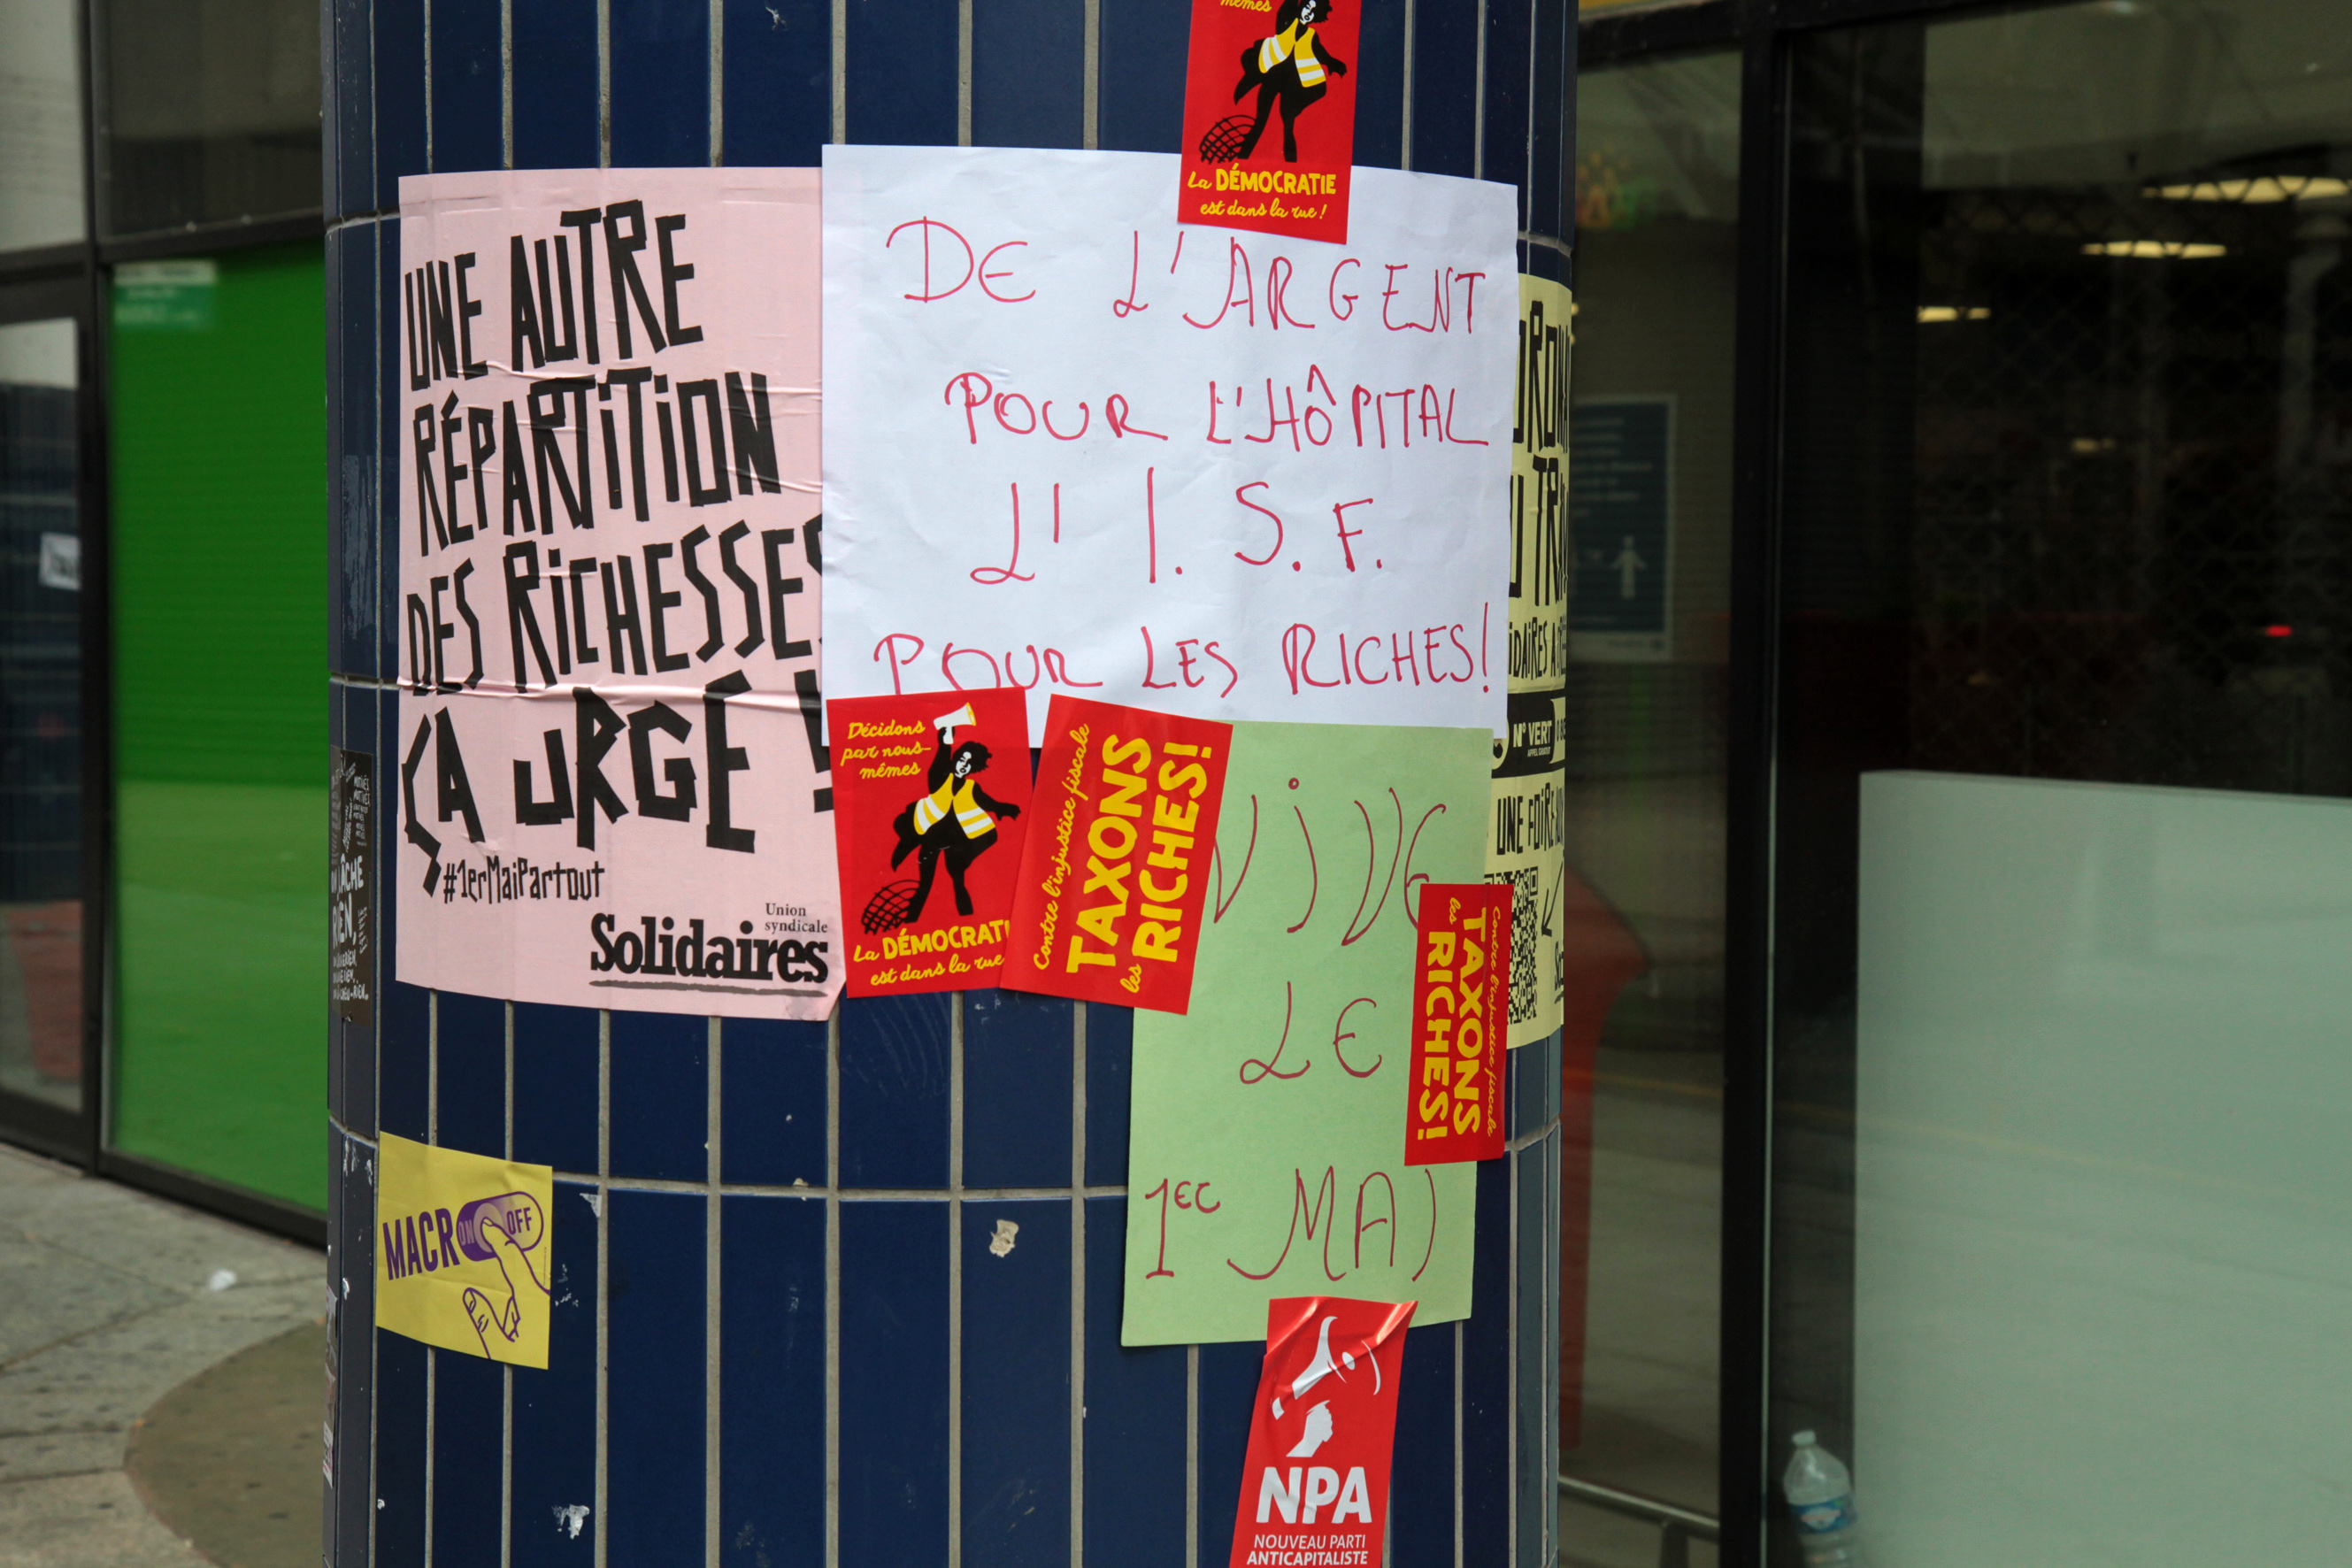 mêmes
La DÉMOCRATIE
est dans la rue !
UNE AUTRE
RÉPARTITION
DES RICHESSES
ÇA URGE !
#1erMaiPartout
Union
syndicale
Solidaires
DE L'ARGENT
POUR L'HÔPITAL
L' I. S. F.
POUR LES RICHES!
Décidons
par nous-
mêmes
La DÉMOCRATI
est dans la rue
Contre l'injustice fiscale
TAXONS
les RICHES!
VIVE
LE
1er MAI
Contre l'injustice fiscale
TAXONS
les RICHES!
N° VERT
APPEL GRATUIT
UNE FOIRE
MACRON OFF
NPA
NOUVEAU PARTI
ANTICAPITALISTE
LÂCHE
RIEN